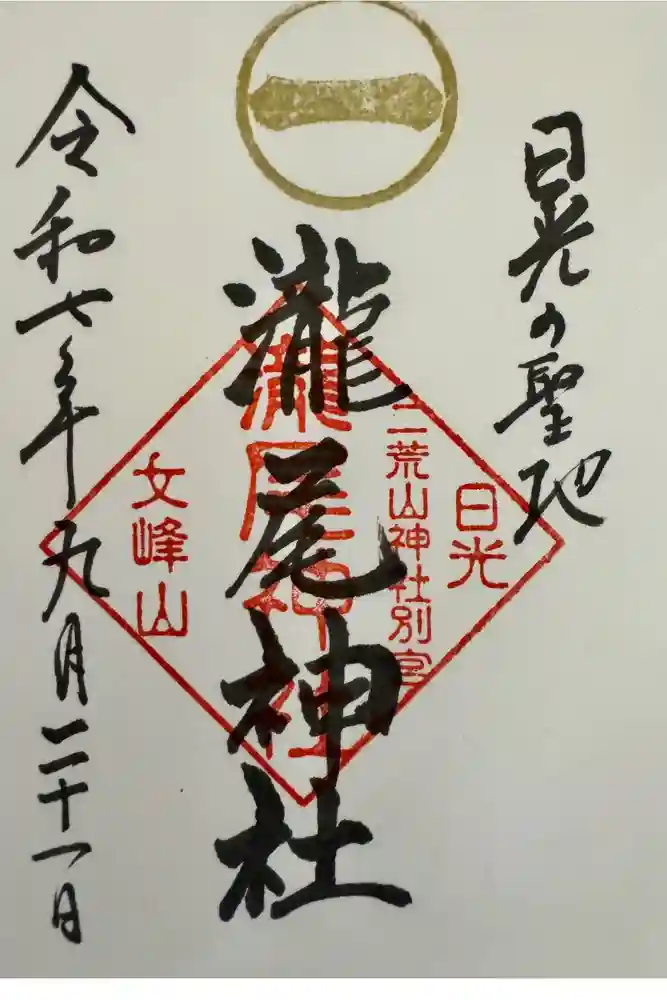 日光の聖地
日光
二荒山神社別宮
瀧尾神社
瀧尾神社
女峰山
令和七年九月二十一日